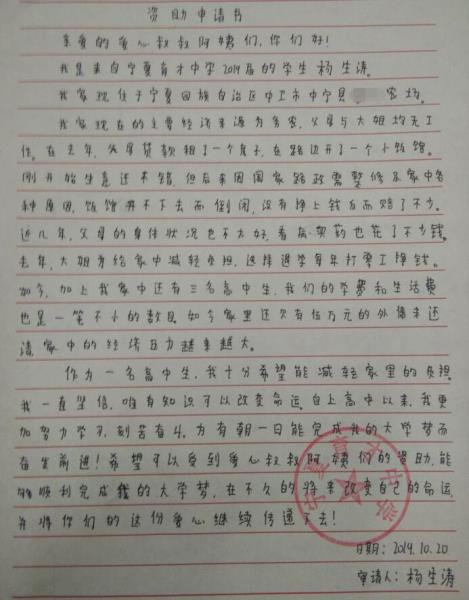 资助申请书
亲爱的爱心叔叔阿姨们,你们好!
我是来自宁夏育才中学2014届的学生杨生涛。
我家现住于宁夏回族自治区中卫市中宁县 农场。
我家现在的主要经济来源为务农,父母与大姐均无工
作。在去年,父母贷款租了一个房子,在路边开了一个小饭馆。
刚开始生意还不错,但后来因国家路政需整修及家中各
种原因,饭馆开不下去而倒闭,没有挣上钱反而赔了不少。
近几年,父母的身体状况也不太好,看病、买药也花了不少钱。
去年,大姐为给家中减轻负担,选择退学每年打零工挣钱。
如今,加上我家中还有三名高中生,我们的学费和生活费
也是一笔不小的数目。如今家里还欠有伍万元的外债未还
清家中的经济压力越来越大。
作为一名高中生,我十分希望能减轻家里的负担。
我一直坚信,唯有知识可以改变命运。自上高中以来,我更
加努力学习,刻苦奋斗。为有朝一日能完成我的大学梦而
奋发前进!希望可以受到爱心叔叔阿姨们的资助,能
够顺利完成我的大学梦,在不久的将来改变自己的命运,
并将你们的这份爱心继续传递下去!
日期:2014.10.20
申请人:杨生涛
宁夏育才中学